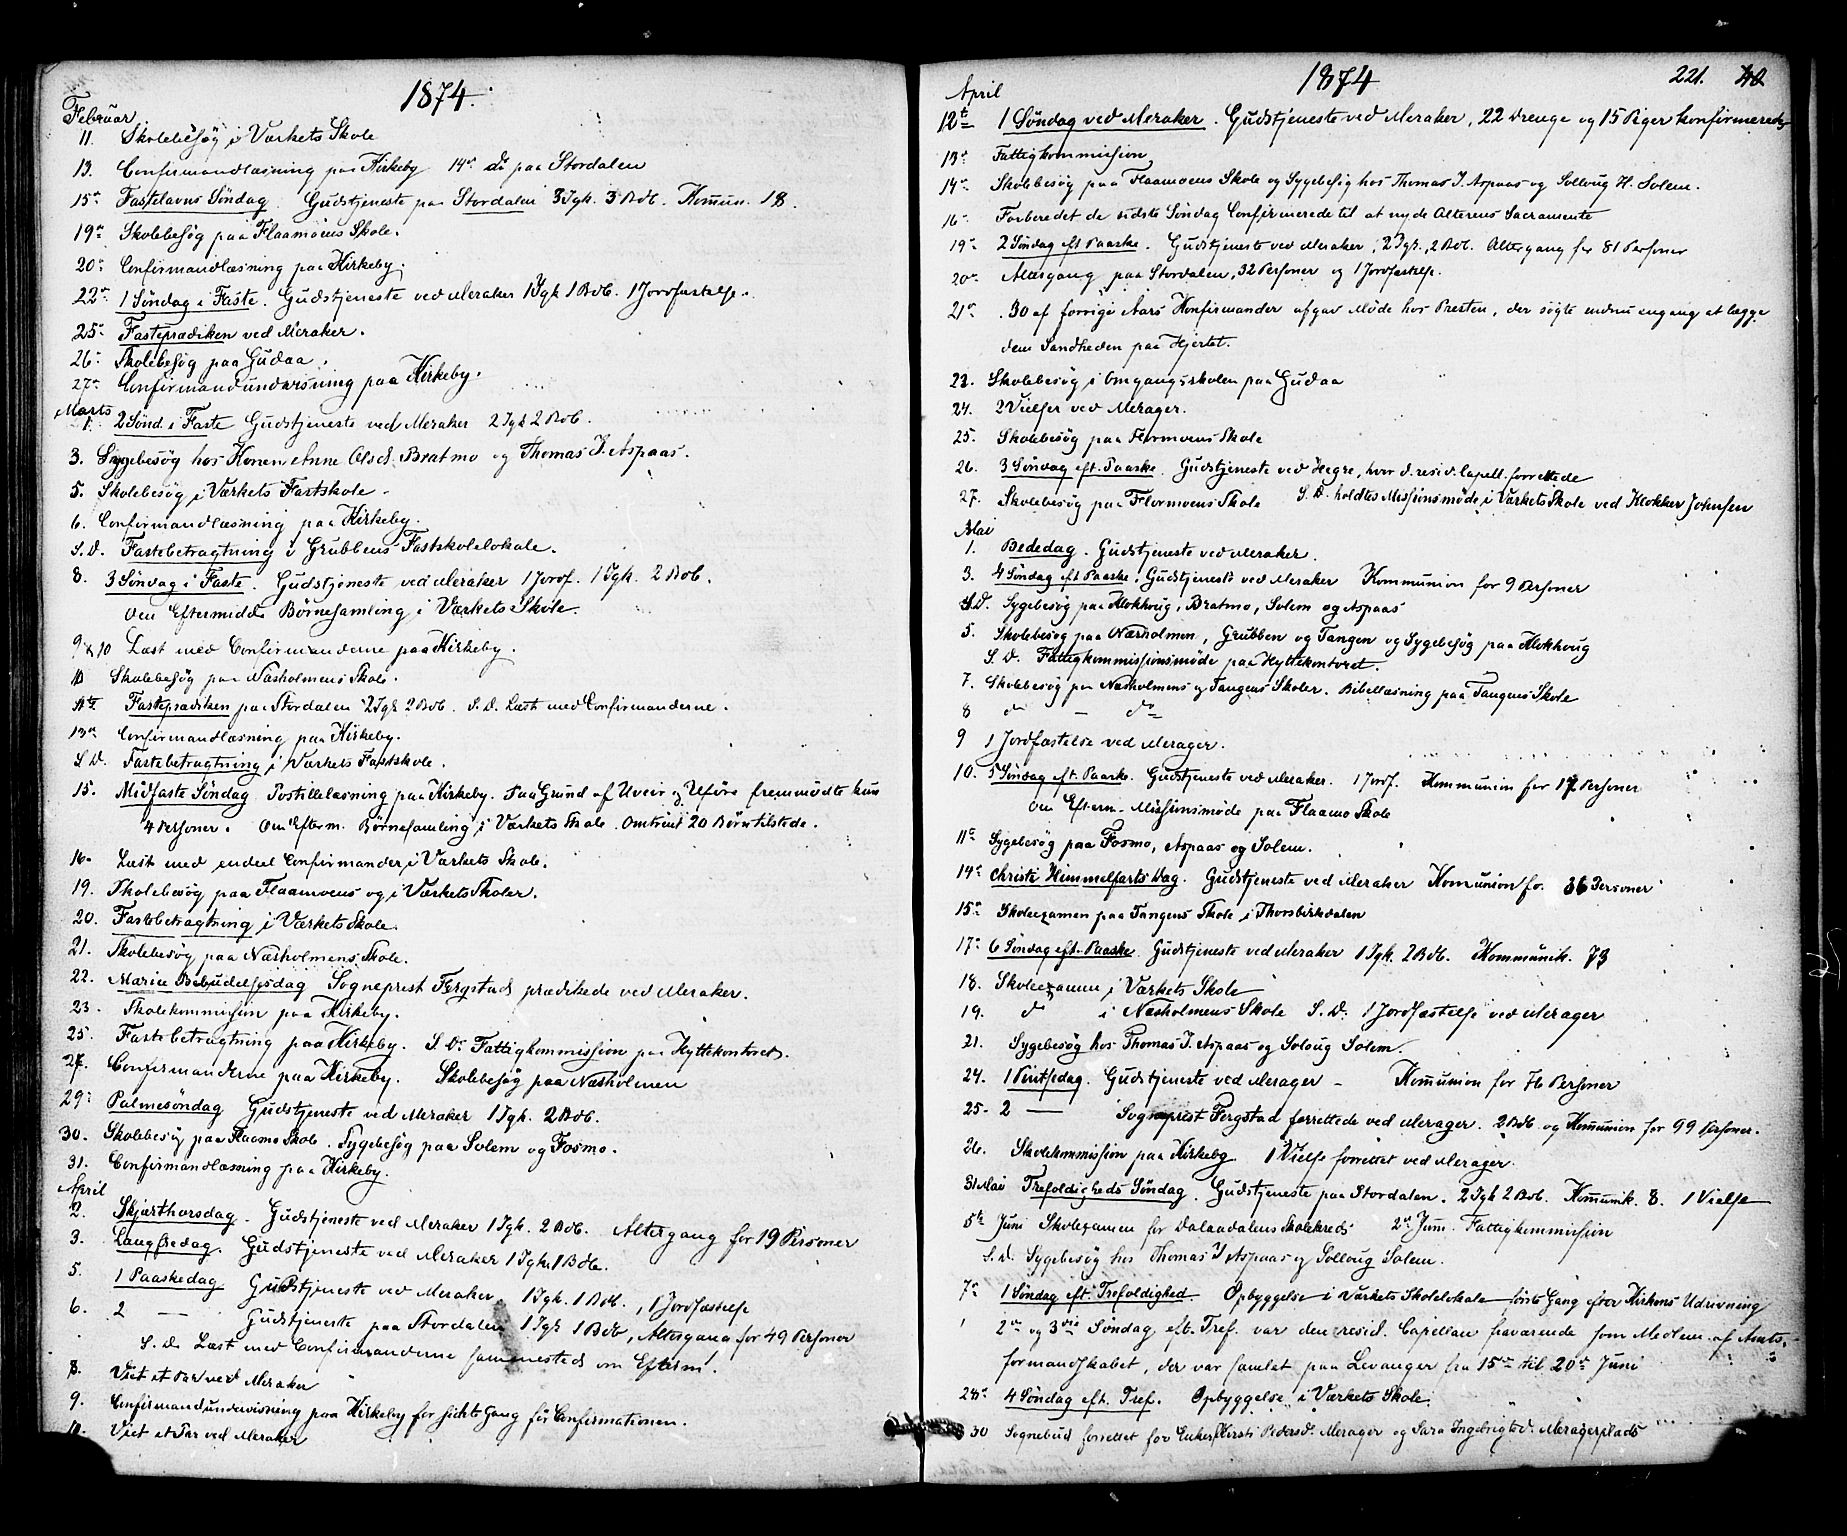 1874.
Februar
11. Skolebesøg i Værkets Skole
13. Confirmandlæsning paa Kirkeby 14de do paa Stordalen
15de Fastelavns Søndag Gudstjeneste paa Stordalen 3 Igk. 3 Bdb. Komun. 18.
19de Skolebesøg paa Flaamoens Skole.
20de Confirmandlæsning paa Kirkeby.
22de 1 Søndag i Faste. Gudstjeneste ved Meraker 1 Igk 1 Bdb. 1 Jordfæstelse.
25de Fasteprædiken ved Meraker.
26de Skolebesøg paa Gudaa.
27de Confirmandundervisning paa Kirkeby.
Marts
1. 2 Sønd. i Faste Gudstjeneste ved Meraker 2 Igk 2 Bdb.
3. Sygebesøg hos Konen Anne Olsd. Bratmo og Thomas J. Aspaas.
5. Skolebesøg i Værkets Fastskole.
6. Confirmandlæsning paa Kirkeby.
S.D. Fastebetragtning i Grubbens Fastskolelokale.
8. 3 Søndag i Faste. Gudstjeneste ved Meraker 1 Jordf. 1 Igk. 2 Bdb.
Om Eftermidd. Børnesamling i Værkets Skole.
9 & 10 Læst med Confirmanderne paa Kirkeby.
10 Skolebesøg paa Næsholmens Skole.
11te Fasteprædiken paa Stordalen 2 Igk 2 Bdb. S.D. Læst med Confirmanderne.
13de Confirmandlæsning paa Kirkeby.
S.D. Fastebetragtning i Værkets Fastskole.
15. Midfaste Søndag Postillelæsning paa Kirkeby. Paa Grund af Uveir og Uføre fremmødte kun
4 Personer. Om Efterm. Børnesamling i Værkets Skole. Omtrent 20 Børn tilstede.
16. Læst med endeel Confirmander i Værkets Skole.
19. Skolebesøg paa Flaamoens og i Værkets Skoler.
20. Fastebetragtning i Værkets Skole.
21. Skolebesøg paa Næsholmens Skole.
22. Mariæ Bebudelsesdag Sogneprest Fergstad prædikede ved Meraker.
23. Skolekommission paa Kirkeby.
25. Fastebetragtning paa Kirkeby. S.D. Fattigkommission paa Hyttekontoret.
27. Confirmanderne paa Kirkeby. Skolebesøg paa Næsholmen
29de Palmesøndag Gudstjeneste ved Meraker 1 Igk. 2 Bdb.
30. Skolebesøg paa Flaamo Skole. Sygebesøg paa Solem og Fosmo.
31. Confirmandlæsning paa Kirkeby.
April
2. Skjærthorsdag. Gudstjeneste ved Meraker 1 Igk. 2 Bdb. Altergang for 19 Personer
3. Langfredag. Gudstjeneste ved Meraker 1 Igk. 1 Bdb.
5. 1 Paaskedag Gudstjeneste ved Meraker 1 Igk. 1 Bdb., 1 Jordfæstelse
6. 2 — Gudstjeneste paa Stordalen 1 Igk 1 Bdb, Altergang for 49 Personer
S.D. Læst med Confirmanderne sammesteds om Efterm.
8. Viet et Par ved Meraker
9. Confirmandundervisning paa Kirkeby for sidste Gang før Confirmationen.
10. Viet et Par ved Meraker
1874 221. 40
April
12te 1 Søndag ved Meraker. Gudstjeneste ved Meraker, 22 Drenge og 15 Piger konfirmeredes
13de Fattigkommission
14de Skolebesøg paa Flaamoens Skole og Sygebesøg hos Thomas J. Aspaas og Solloug H. Solem.
16de Forberedet de sidste Søndag Confirmerede til at nyde Alterens Sacramente
19de 2 Søndag eft Paaske. Gudstjeneste ved Meraker, 2 Igk., 2 Bdb. Altergang for 81 Personer
20de Altergang paa Stordalen, 32 Personer og 1 Jordfæstelse.
21de 30 af forrige Aars Konfirmander afgav Møde hos Presten, der søgte endnu engang at lægge
dem Sandheden paa Hjertet.
22. Skolebesøg i Omgangsskolen paa Gudaa
24. 2 Vielser ved Merager.
25. Skolebesøg paa Flormoens Skole
26. 3 Søndag eft. Paaske. Gudstjeneste ved Hegre, hvor d. resid. Capell. forrettede
27. Skolebesøg paa Flormoens Skole S.D. holdtes Missionsmøde i Værkets Skole ved Klokker Johnsen
Mai
1. Bededag. Gudstjeneste ved Meraker.
3. 4 Søndag eft Paaske. Gudstjeneste ved Meraker Kommunion for 9 Personer
S.D. Sygebesøg paa Klokhoug, Bratmo, Solem og Aspaas
5. Skolebesøg paa Næsholmen, Grubben og Tangen og Sygebesøg paa Klokhoug
S.D. Fattigkommissionsmøde paa Hyttekontoret.
7. Skolebesøg paa Næsholmens og Tangens Skoler. Bibellæsning paa Tangens Skole
8 do — do
9 1 Jordfæstelse ved Merager.
10. 5 Søndag eft. Paaske. Gudstjeneste ved Meraker. 1 Jordf. Kommunion for 17 Personer
Om Efterm. Missionsmøde paa Flaamo Skole
11te Sygebesøg paa Fosmo, Aspaas og Solem.
14de Christi Himmelfarts Dag. Gudstjeneste ved Meraker Komunion for 36 Personer
15de Skoleexamen paa Tangens Skole i Thorsbirkdalen
17de 6 Søndag eft. Paaske Gudstjeneste ved Meraker 1 Igk. 2 Bdb. Kommunik. 73
18. Skoleexamen i Værkets Skole
19. do i Næsholmens Skole S.D. 1 Jordfæstelse ved Merager
21. Sygebesøg hos Thomas J. Aspaas og Soloug Solem.
24. 1 Pintsedag. Gudstjeneste ved Merager – Komunion for 76 Personer
25. 2 — Sogneprest Fergstad forrettede ved Merager. 2 Bdb og Komunion for 99 Personer.
26. Skolekommission paa Kirkeby 1 Vielse forrettet ved Merager.
31 Mai Trefoldigheds Søndag. Gudstjeneste paa Stordalen. 2 Igk 2 Bdb. Komunik. 8. 1 Vielse
5te Juni Skoleexamen for Dalaadalens Skolekreds 2den Juni. Fattigkommission
S.D. Sygebesøg hos Thomas J Aspaas og Solloug Solem.
7de 1 Søndag eft. Trefoldighed Opbyggelse i Værkets Skolelokale første Gang efter Kirkens Udrivning
2den og 3die Søndag eft. Tref. var den resid. Capellan fraværende som Medlem af Amts-
formandskabet, der var samlet paa Levanger fra 15de til 20de Juni
28de 4 Søndag eft. Tref. Opbyggelse i Værkets Skole.
30 Sognebud forrettet for Enken Kirsti Pedersd. Merager og Sara Ingebrigtsd. Meragerplads